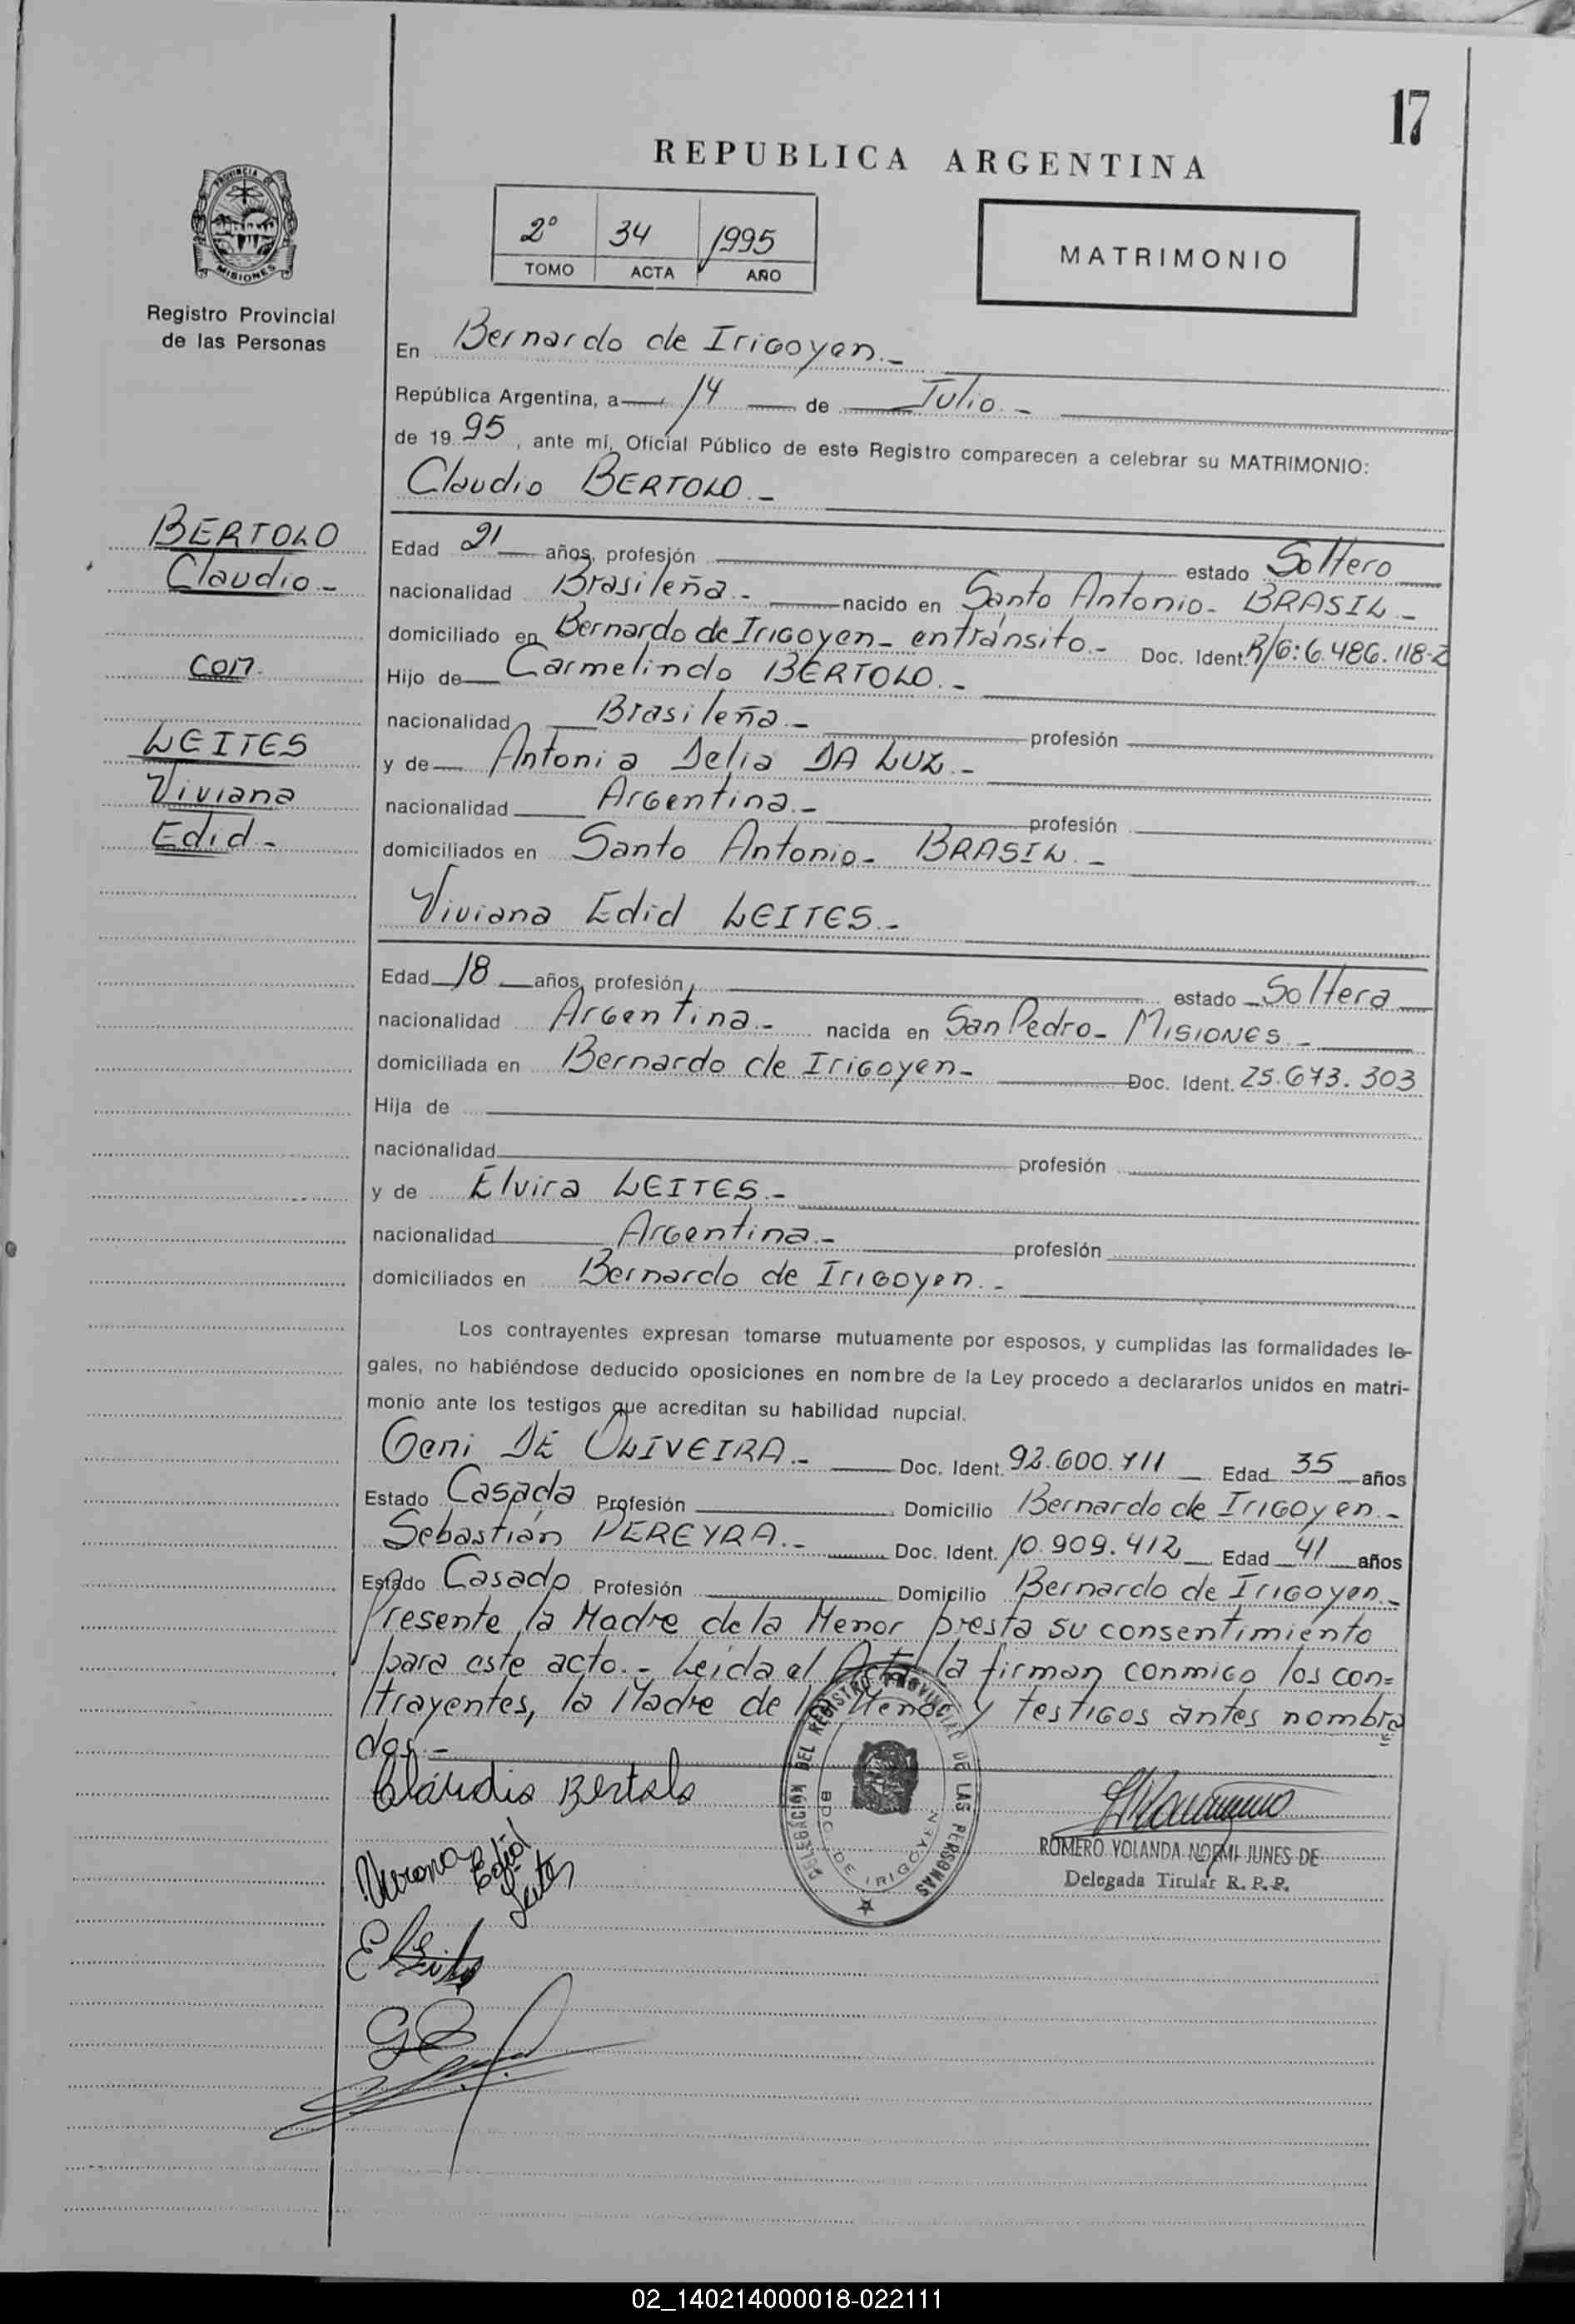 17
REPUBLICA ARGENTINA
PROVINCIA DE
MISIONES
Registro Provincial
de las Personas
2º 34 1995
TOMO ACTA AÑO
MATRIMONIO
En Bernardo de Irigoyen.-
República Argentina, a 14 de Julio.-
de 19 95, ante mí, Oficial Público de este Registro comparecen a celebrar su MATRIMONIO:
Claudio BERTOLO.-
BERTOLO
Claudio-
con
LEITES
Viviana
Edid-
Edad 21 años, profesión estado Soltero
nacionalidad Brasileña.- nacido en Santo Antonio- BRASIL-
domiciliado en Bernardo de Irigoyen- en tránsito.- Doc. Ident. R/G: 6.486.118-2
Hijo de Carmelindo BERTOLO.-
nacionalidad Brasileña.- profesión
y de Antonia Delia DA LUZ.-
nacionalidad Argentina.- profesión
domiciliados en Santo Antonio- BRASIL.-
Viviana Edid LEITES.-
Edad 18 años, profesión estado Soltera
nacionalidad Argentina.- nacida en San Pedro- MISIONES.-
domiciliada en Bernardo de Irigoyen- Doc. Ident. 25.673.303
Hija de
nacionalidad profesión
y de Elvira LEITES.-
nacionalidad Argentina.- profesión
domiciliados en Bernardo de Irigoyen.-
Los contrayentes expresan tomarse mutuamente por esposos, y cumplidas las formalidades le-
gales, no habiéndose deducido oposiciones en nombre de la Ley procedo a declararlos unidos en matri-
monio ante los testigos que acreditan su habilidad nupcial.
Geni DE OLIVEIRA.- Doc. Ident. 92.600.711 Edad 35 años
Estado Casada Profesión Domicilio Bernardo de Irigoyen.-
Sebastián PEREYRA.- Doc. Ident. 10.909.412 Edad 41 años
Estado Casado Profesión Domicilio Bernardo de Irigoyen.-
Presente la Madre de la Menor presta su consentimiento
para este acto.- Leída el Acta la firman conmigo los con=
trayentes, la Madre de la Menor y testigos antes nombra=
dos.-
Cláudio Bertolo
Viviana Edid
Leites
E Leites
DELEGACIÓN DEL REGISTRO PROVINCIAL DE LAS PERSONAS
BDO. DE IRIGOYEN
ROMERO YOLANDA NOEMI JUNES DE
Delegada Titular R. P. P.
02_140214000018-022111